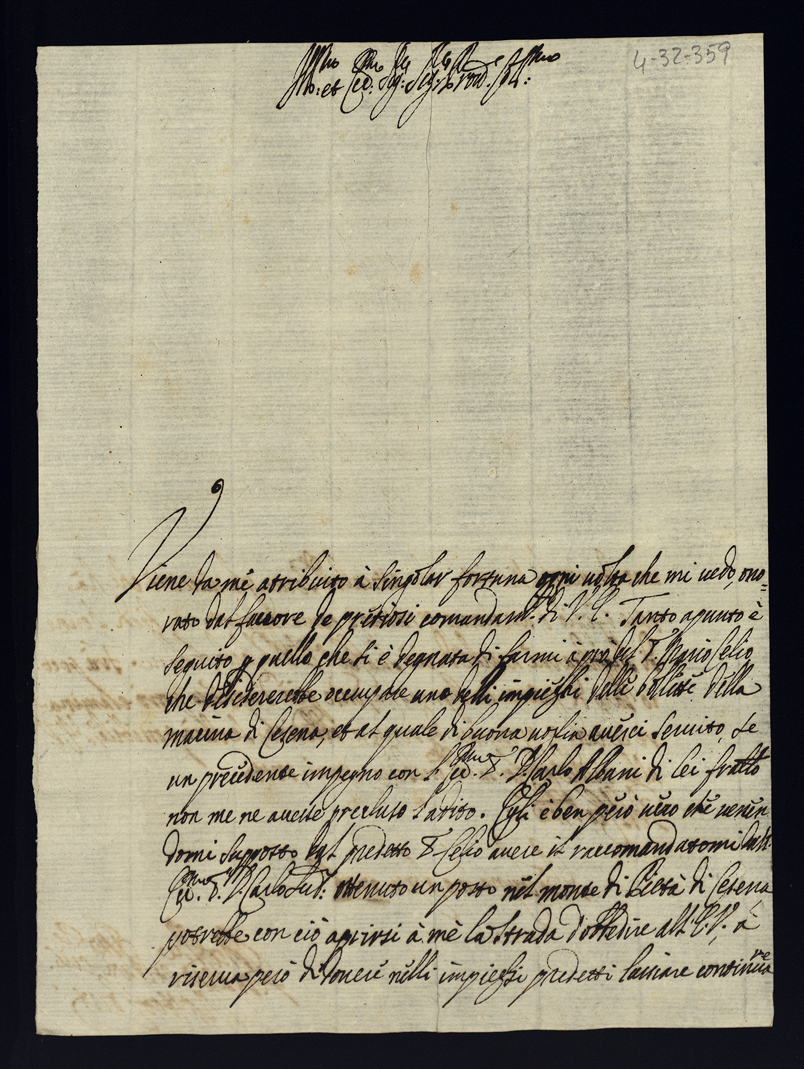 4-32-359
Ill.mo et Ecc.mo Sig.r Sig.r P.ron Col.mo
Viene da mè attribuito à singolar fortuna ogni volta che mi vedo, ono=
rato dal favore de pretiosi comandam.ti di V. E. Tanto apunto è
seguito p quello che si è degnata di farmi à prò del S.r Mario Celio
che desidererebbe occupare uno delli impieghi delle bollette della
macina di Cesena, et al quale di buona voglia averei servito, se
un precedente impegno con l'Ecc.mo S.r D. Carlo Albani di lei fratello
non me ne avesse precluso l'adito. Egli è ben però vero che venen
domi supposto dal predetto S.r Celio avere il raccomandatomi dall'
Ecc.mo S.r D. Carlo sud.o ottenuto un posto nel monte di Pietà di Cesena
potrebbe con ciò aprirsi à mè la strada d'obbedire all'E. V., à
riserva però di dovere nelli impieghi predetti lasciare continuare